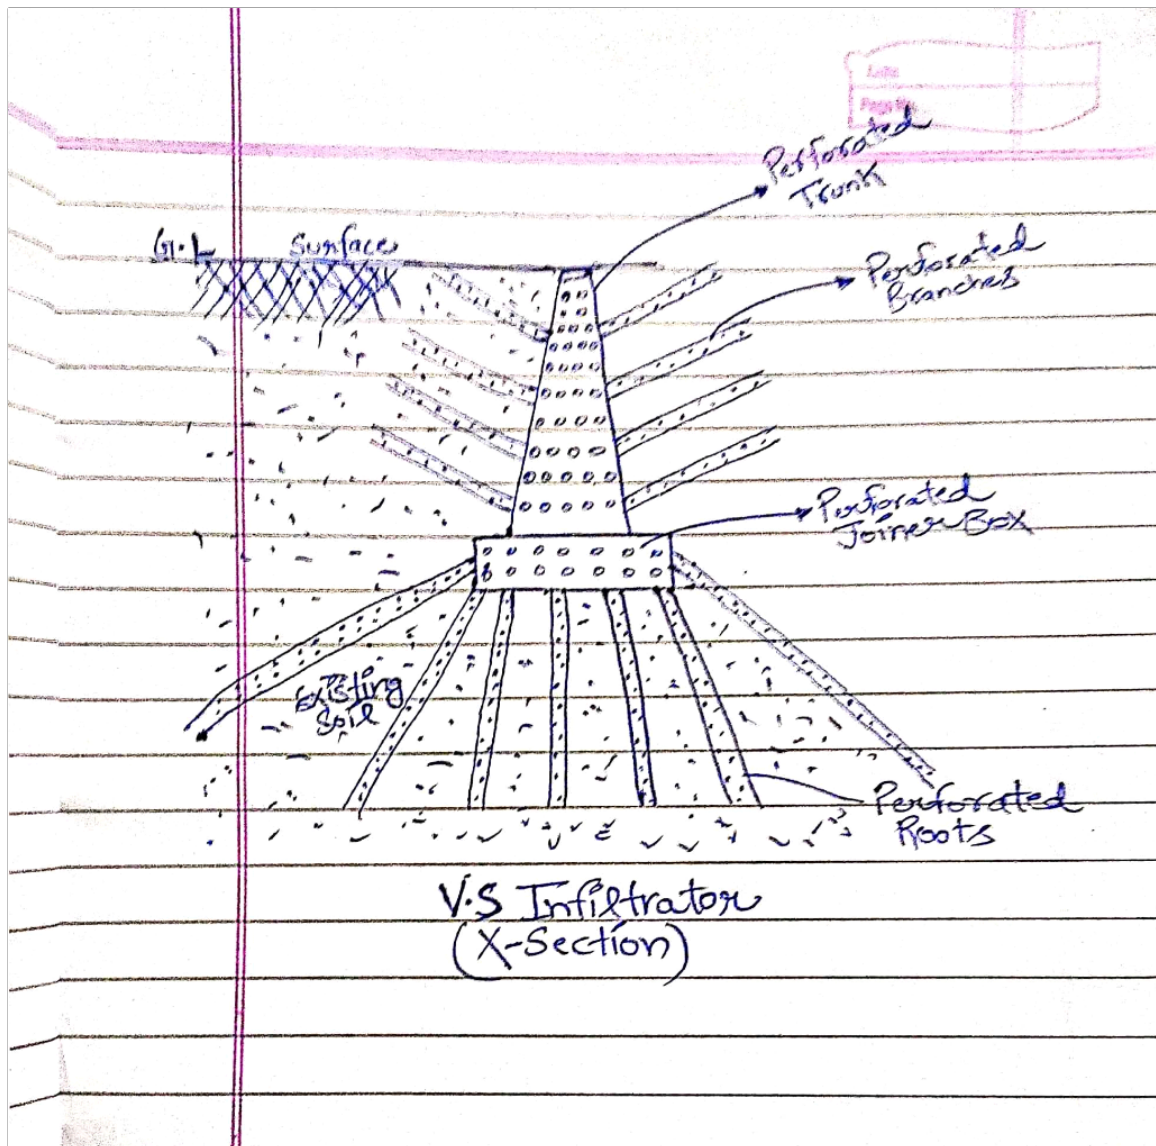 Page No.
Perforated
Trunk
G.L Surface
Perforated
Branches
Perforated
Joiner Box
Existing
Soil
Perforated
Roots
V.S Infiltrator
(X-Section)